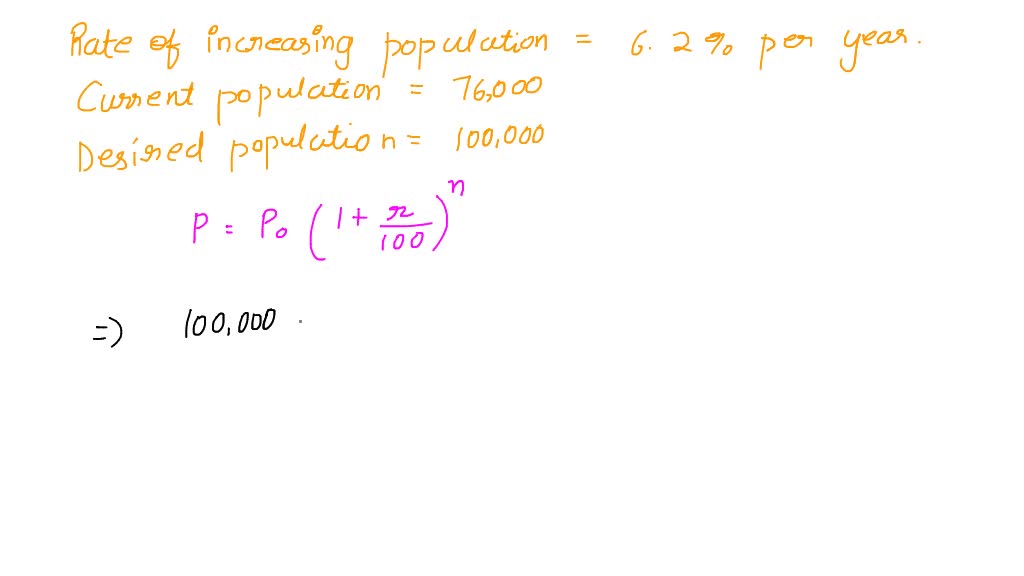 Rate of increasing population = 6.2% per year.
Current population = 76,000
Desired population = 100,000
P = P₀ (1 + r/100)ⁿ
=) 100,000